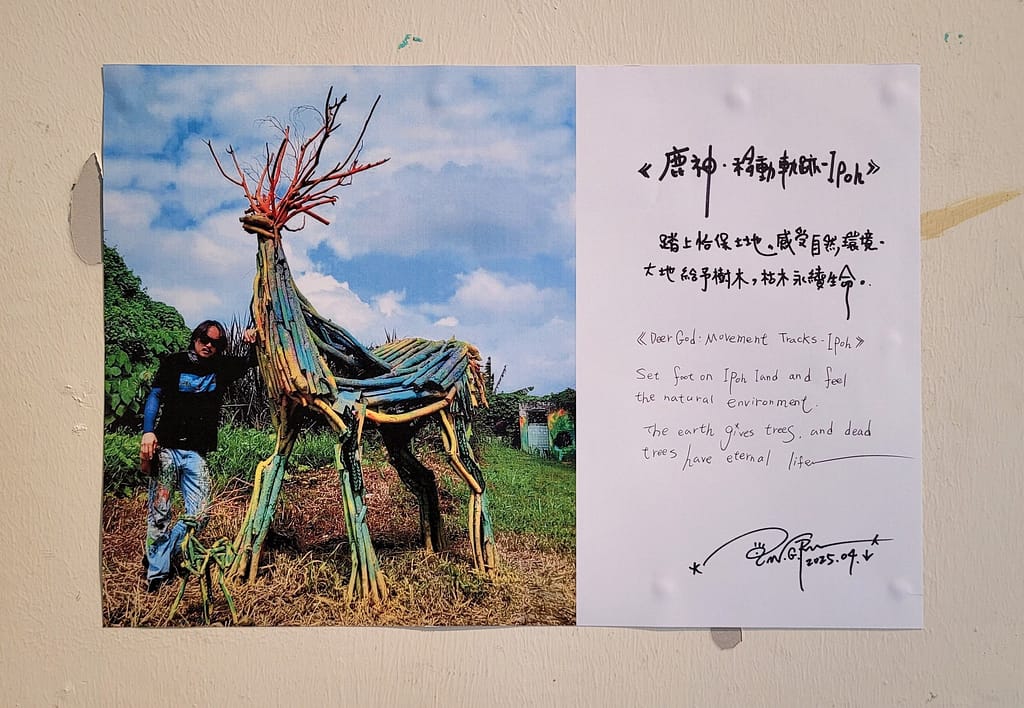 《鹿神·移動軌跡-Ipoh》
踏上怡保土地。感受自然環境-
大地給予樹木,枯木永續生命。
《Deer God·Movement Tracks-Ipoh》
Set foot on Ipoh land and feel
the natural environment.
The earth gives trees, and dead
trees have eternal life
2025.04.